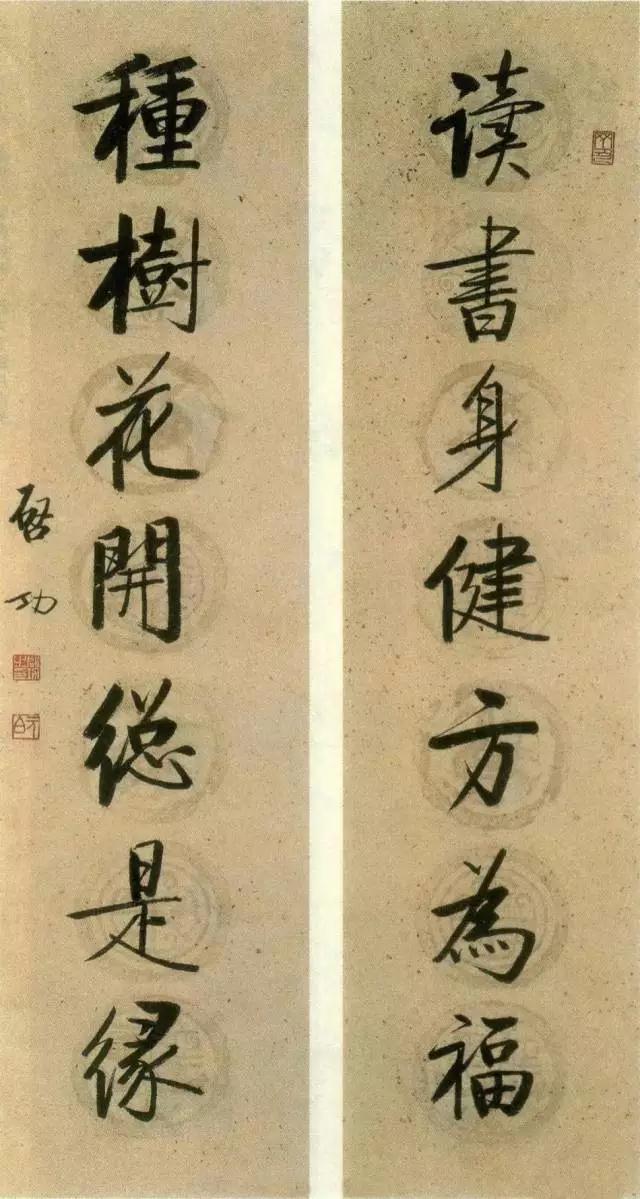 读书身健方為福
種樹花開緫是缘
啓功